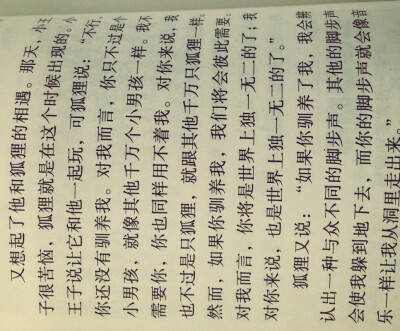 又想起了他和狐狸的相遇。那天，小王
子很苦恼，狐狸就是在这个时候出现的。小
王子说让它和他一起玩，可狐狸说：“不行，
你还没有驯养我。对我而言，你只不过是个
小男孩，就像其他千万个小男孩一样。我不
需要你，你也同样用不着我。对你来说，我
也不过是只狐狸，就跟其他千万只狐狸一样。
然而，如果你驯养我，我们将会彼此需要。
对我而言，你将是世界上独一无二的了；我
对你来说，也是世界上独一无二的了。”
狐狸又说：“如果你驯养了我，我会辨
认出一种与众不同的脚步声。其他的脚步声
会使我躲到地下去，而你的脚步声就会像音
乐一样让我从洞里走出来。”